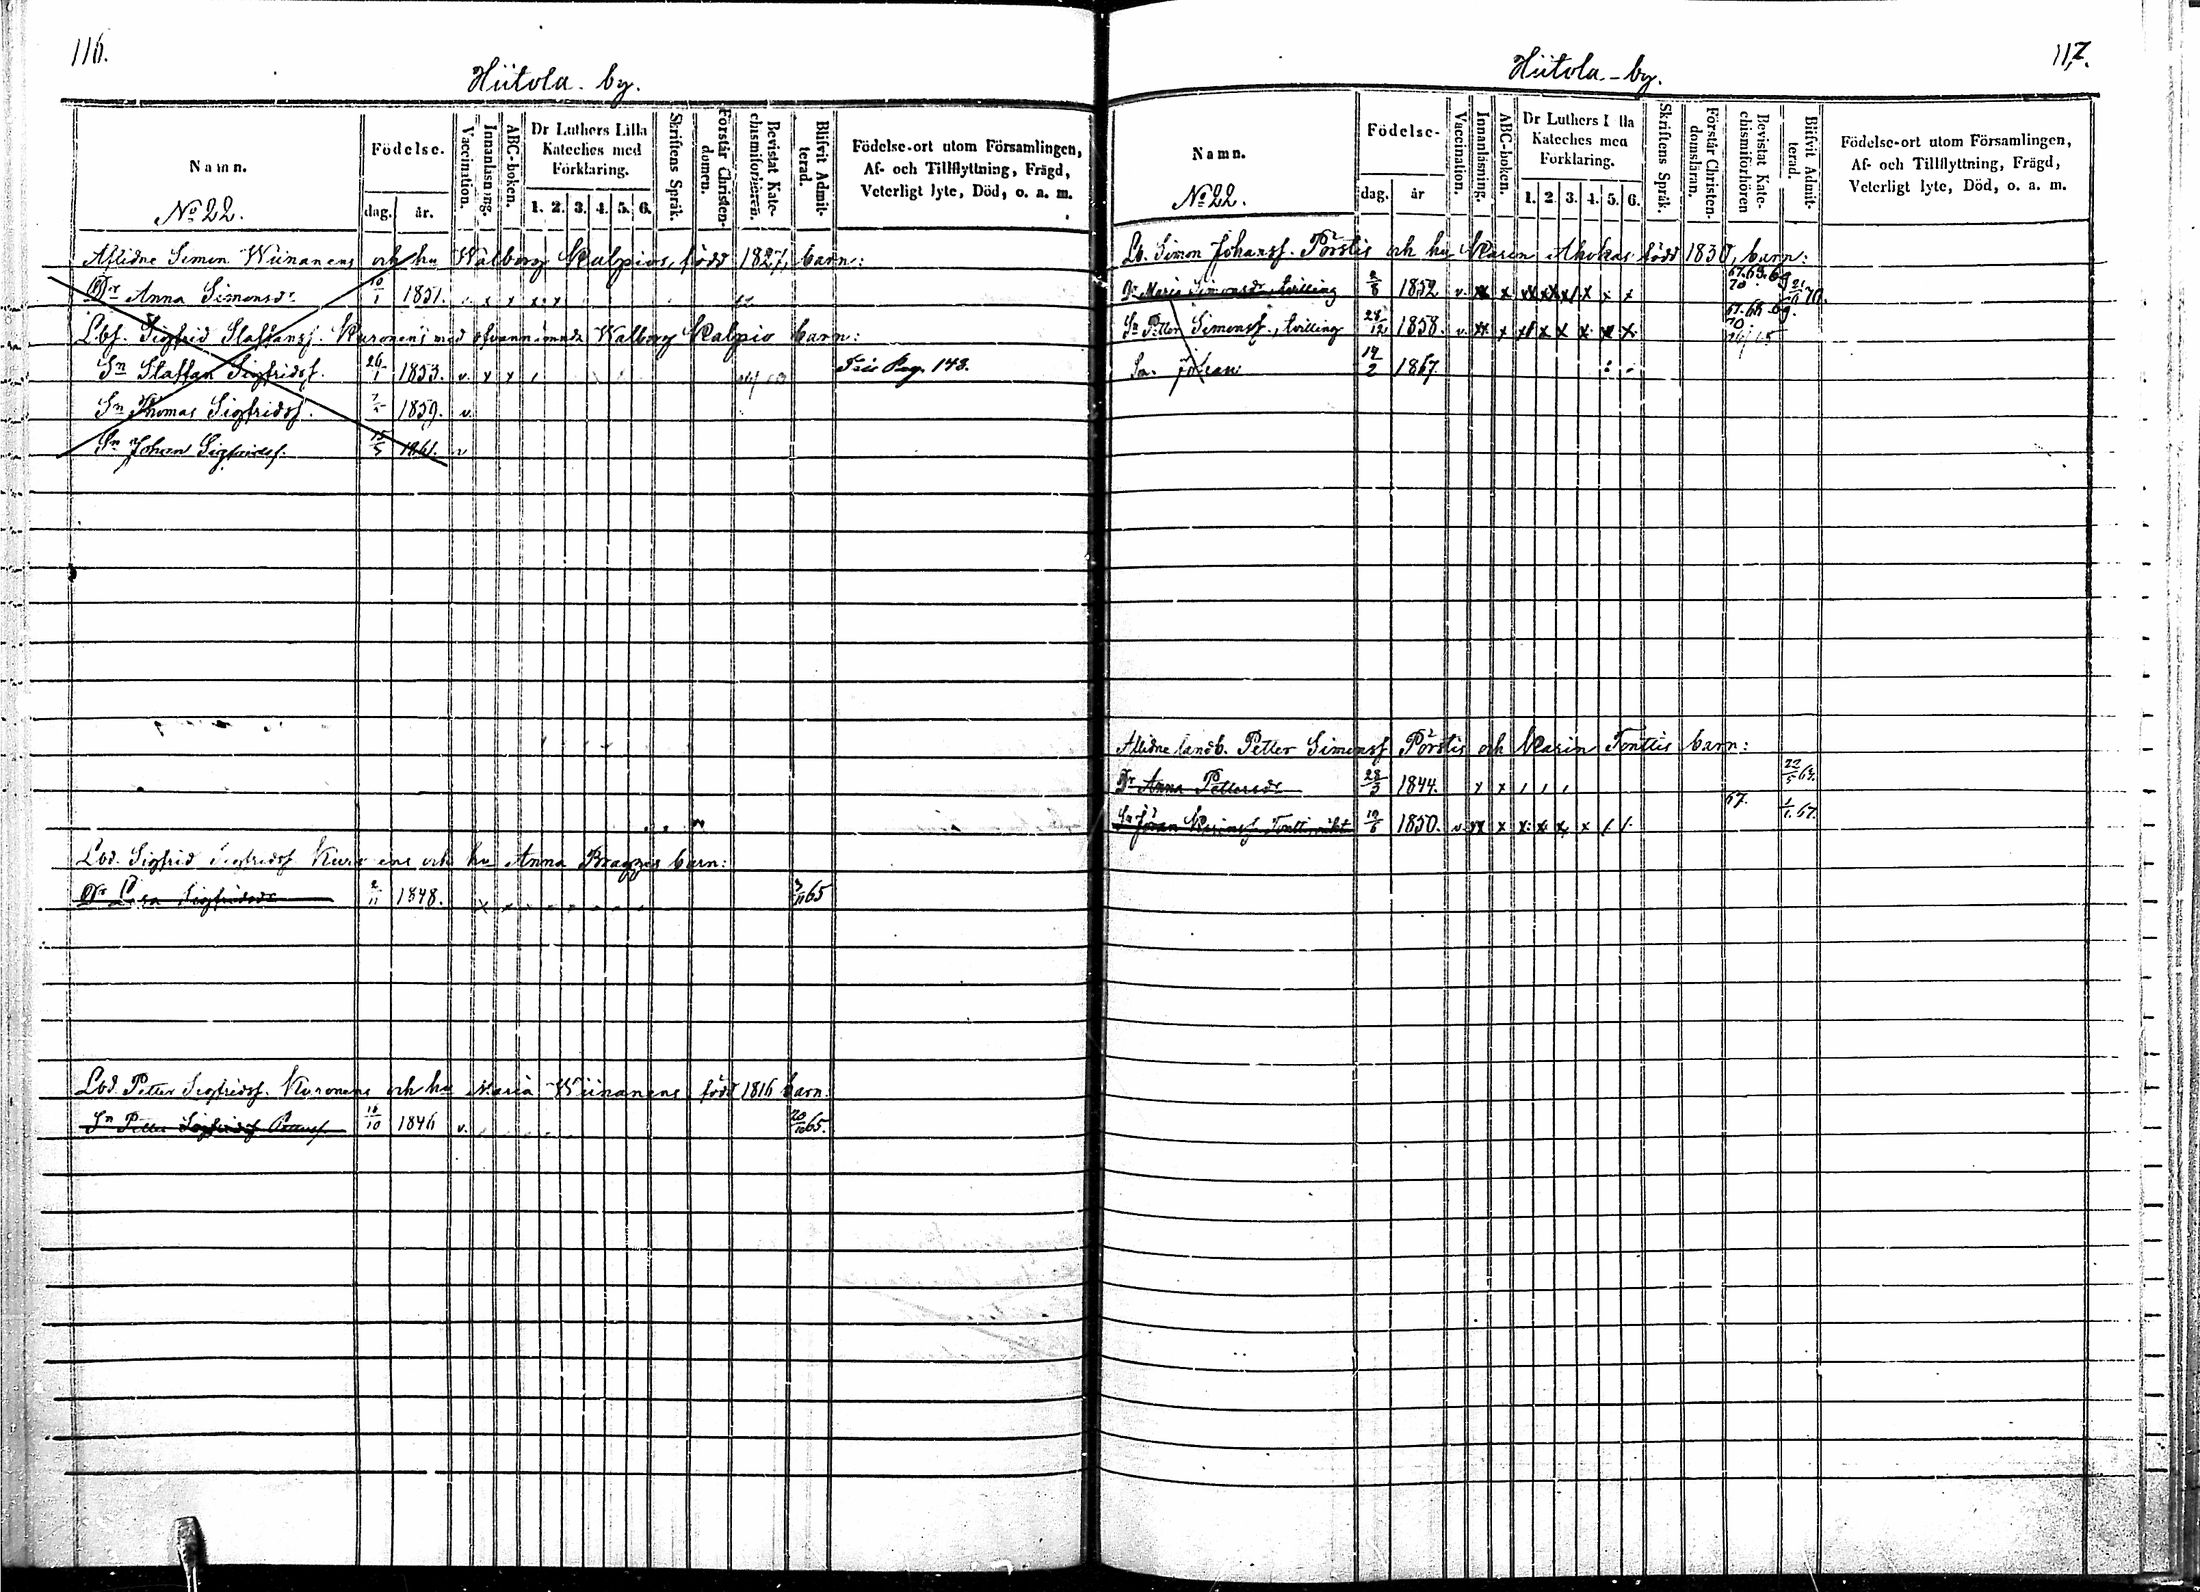 116.
Hiitola by.
Namn.
No 22.
Födelse.
dag.
år.
Vaccination.
Innanläsning.
ABC-boken.
Dr Luthers Lilla Kateches med Förklaring.
1. 2. 3. 4. 5. 6.
Skriftens Språk.
Förstår Christendomen.
Bevistat Katechismiförhören.
Blifvit Admitterad.
Födelse-ort utom Församlingen,
Af- och Tillflyttning, Frägd,
Veterligt lyte, Död, o. a. m.
Aflidne Simon Wiinanens och hu Walborg Kalpios, född 1827, barn:
Dr Anna Simonsdr 10/1 1851. v x x x x
Lbf. Sigfrid Staffansf. Kuronens med ofvannämnda Walborg Kalpio barn:
Sn Staffan Sigfridsf. 26/1 1853. v x x Pag. 143.
Sn Thomas Sigfridsf. 1859. v
Sn Johan Sigfridsf. 15/5 1861. v
Lbd. Sigfrid Sigfridsf. Kuronens och hu Anna Bragges barn:
Sigfridsdr 2/11 1848. 65
Lbd. Petter Sigfridsf. Kuronens och hu Maria Wiinanens född 1816 barn:
Sn Petter 16/10 1846 v. 20/10 65.
117.
Hiitola by.
Namn.
No 22.
Födelse-
dag.
år
Vaccination.
Innanläsning.
ABC-boken.
Dr Luthers Lilla Kateches med Förklaring.
1. 2. 3. 4. 5. 6.
Skriftens Språk.
Förstår Christendomsläran.
Bevistat Katechismiförhören
Blifvit Admitterad.
Födelse-ort utom Församlingen,
Af- och Tillflyttning, Frägd,
Veterligt lyte, Död, o. a. m.
Lb. Simon Johansf. Pörstis och hu Karin Ahokas född 1830, barn:
Dr Maria Simonsdr, tvilling 2/8 1852 v. x x x x x x x x 67. 68. 69 70 70.
Sn Petter Simonsf., tvilling 28/12 1858. v. x x x x x x x x 67. 68. 69. 70.
Sn. Johan 14/2 1867.
Aflidne landb. Petter Simonsf Pörstis och Karin Tonttis barn:
Dr Anna Pettersdr 28/3 1844. x x 22/5 64.
Sn Göran Karinsf. Tontti 10/6 1850. v x x x x x x 67. 67.